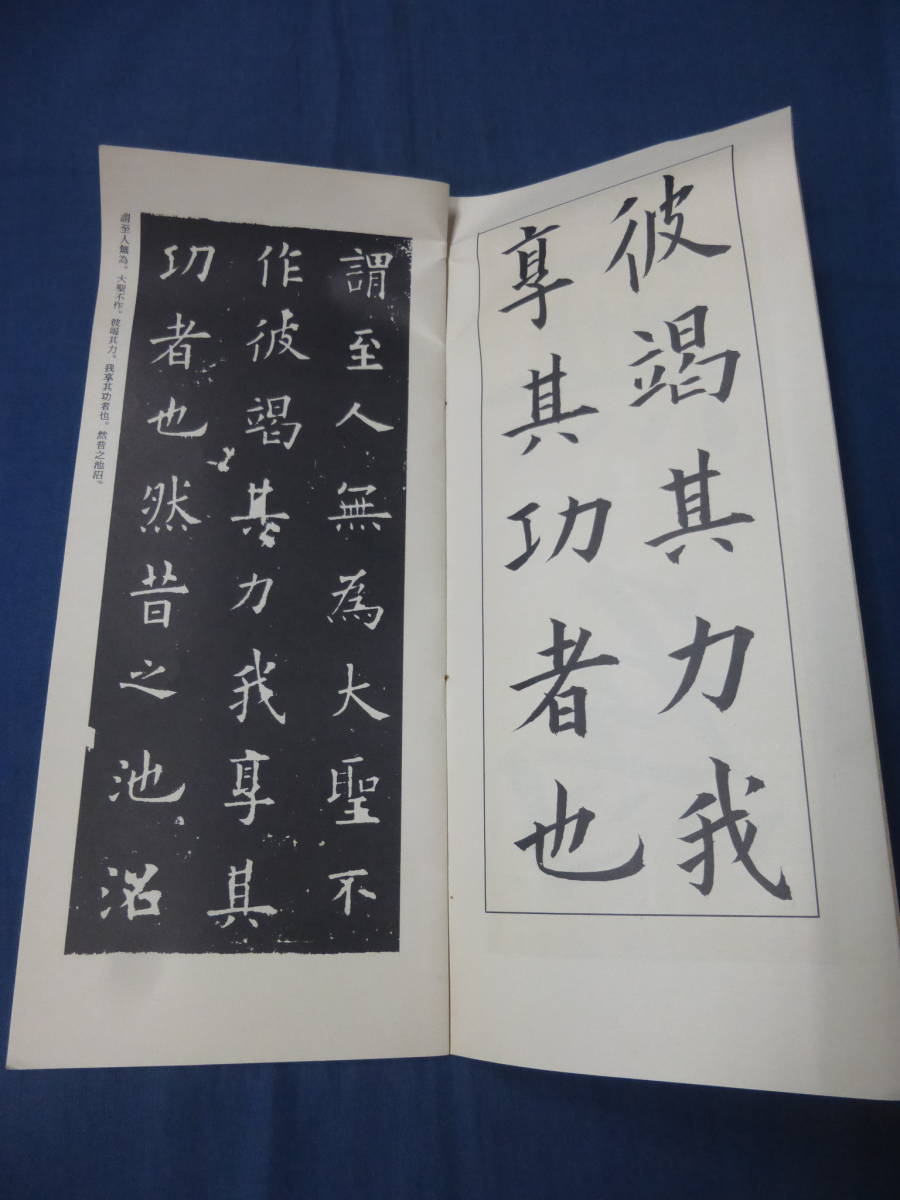 彼竭其力我
享其功者也
謂至人無為大聖不
作彼竭其力我享其
功者也然昔之池沼
謂至人無為。大聖不作。彼竭其力。我享其功者也。然昔之池沼。